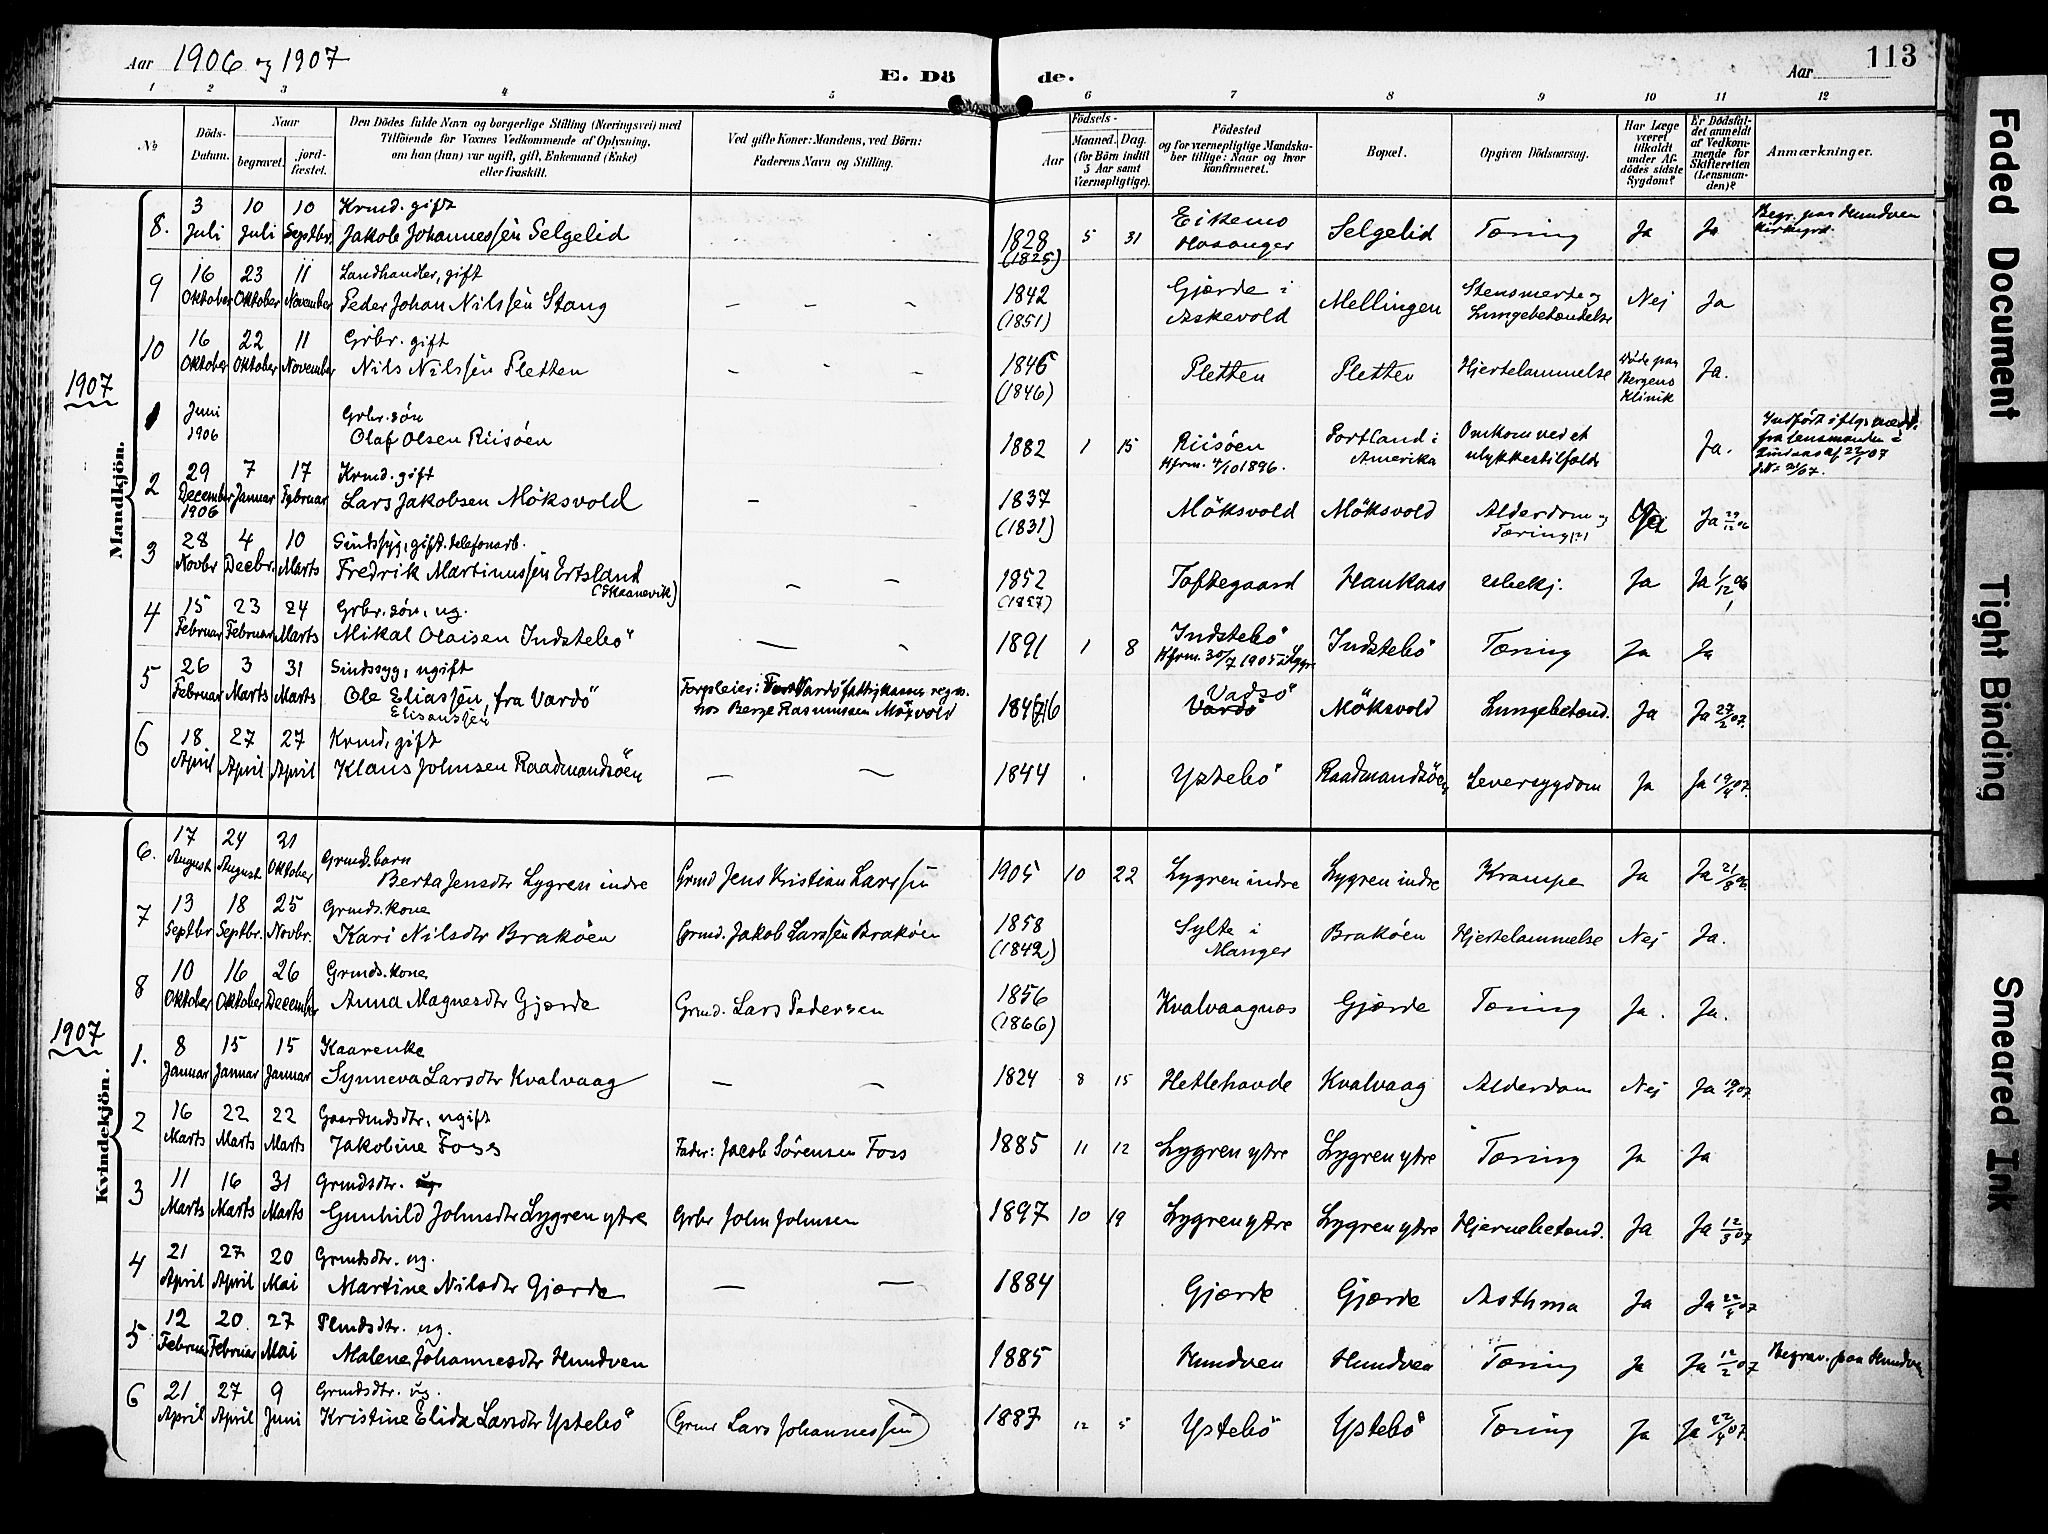 Aar 1906 og 1907
E. Dö de.
Aar
113
1 2 3 4 5 6 7 8 9 10 11 12
No
Döds-Datum.
Naar
begravet.
jord-fæstet.
Den Dödes fulde Navn og borgerlige Stilling (Næringsvei) med
Tilföiende for Voxnes Vedkommende af Oplysning,
om han (hun) var ugift, gift, Enkemand (Enke)
eller fraskilt.
Ved gifte Koner: Mandens, ved Börn:
Faderens Navn og Stilling.
Födsels-
Aar
Maaned. Dag.
(for Börn indtil
5 Aar samt
Værnepligtige).
Födested
og for værnepligtige Mandska-
ber tillige: Naar og hvor
konfirmeret.
Bopæl.
Opgiven Dödsaarsag.
Har Læge
været
tilkaldt
under Af-
dödes sidste
Sygdom?
Er Dödsfal-
det anmeldt
af Vedkom-
mende for
Skifteretten
(Lensman-
den)?
Anmærkninger.
Mandkjön.
8. 3 Juli 10 Juli 10 Septbr. Krmd. gift
Jakob Johannessen Selgelid 1828 (1825) 5 31 Eikemo Hosanger Selgelid Tæring Ja Ja Begr. paa Hundven Kirkegrd.
9 16 Oktober 23 Oktober 11 November Landhandler, gift
Peder Johan Nilssen Stang — — — 1842 (1851) Gjærde i Askevold Mellingen Stensmerte og Lungebetændelse Nej Ja
10 16 Oktober 22 Oktober 11 November Grbr. gift
Nils Nilssen Sletten — — — 1846 (1846) Sletten Sletten Hjertelammelse Döde paa Bergens Klinik Ja.
1907
1 Juni 1906 Grbr. sön
Olaf Olsen Riisöen 1882 1 15 Riisöen Kfrm. 4/10 1896. Portland i Amerika Omkom ved et ulykkestilfælde Ja. Indfört iflg. medd.
fra lensmanden i
Lindaas af 22/1 07
2 29 December 1906 7 Januar 17 Februar Krmd. gift
Lars Jakobsen Möksvold — 1837 (1831) Möksvold Möksvold Alderdom og Tæring (?) Ja Ja 29/12 06
3 28 Novbr 4 Decbr. 10 Marts Sindssyg, gift. telefonarb.
Fredrik Martinussen Ertsland (Skaanevik) — — 1852 (1857) Toftegaard Haukaas Ubekj. Ja Ja 1/12 06
4 15 Februar 23 Februar 24 Marts Grbr. sön, ug.
Mikal Olaisen Indstebö — 1891 1 8 Indstebö Kfrm. 30/7 1905 i Lygre Indstebö Tæring Ja Ja
5 26 Februar 3 Marts 31 Marts Sindssyg, ugift
Ole Eliassen, fra Vardö
Elisaussen
Forpleier: Vardö fattigkasses regn.
hos Berge Rasmussen Möksvold
Vadsö Vardö Möksvold Lungebetænd. Ja Ja 27/2 07.
6 18 April 27 April 27 April Krmd, gift
Klaus Johnsen Raadmandsöen — — 1844 Ystebö Raadmandsöen Leversygdom Ja Ja 19/4 07.
Kvindekjön.
6. 17 August 24 August 21 Oktober Grmds. barn
Berta Jensdtr Lygren indre Grmd Jens Kristian Larssen 1905 10 22 Lygren indre Lygren indre Krampe Ja Ja 21/8 06
7 13 Septbr 18 Septbr. 25 Novbr. Grmds. kone
Kari Nilsdtr Braköen Grmd. Jakob Larssen Braköen 1858 (1842) Sylte i Manger Braköen Hjertelammelse Nej Ja.
8 10 Oktober 16 Oktober 26 December Grmds. kone
Anna Magnesdtr Gjærde Grmd. Lars Pedersen 1856 (1866) Kvalvaagnes Gjærde Tæring Ja. Ja.
1907
1. 8 Januar 15 Januar 15 Januar Kaarenke
Synneva Larsdtr Kvalvaag — — 1824 8 15 Hetlehovde Kvalvaag Alderdom Nej Ja
2 16 Marts 22 Marts 22 Marts Gaardmdsdtr, ugift
Jakobine Foss Fader: Jacob Sörensen Foss 1885 11 12 Lygren ytre Lygren ytre Tæring Ja Ja
3 11 Marts 16 Marts 31 Marts Grmdsdtr. ug.
Gunhild Johnsdtr Lygren ytre Grbr John Johnsen 1897 10 19 Lygren ytre Lygren ytre Hjernebetænd. Ja Ja 12/3 07
4 21 April 27 April 20 Mai Grmdsdtr. ug.
Martine Nilsdtr Gjærde — — 1884 Gjærde Gjærde Asthma Ja Ja 22/4 07
5 12 Februar 20 Februar 27 Mai Plmdsdtr. ug.
Malene Johannesdtr Hundven 1885 Hundven Hundven Tæring Ja Ja 12/2 07 Begrav. paa Hundven
6 21 April 27 April 9 Juni Grmdsdtr. ug.
Kristine Elida Larsdtr Ystebö (Grmd Lars Johannessen) 1887 12 5 Ystebö Ystebö Tæring Ja Ja 22/4 07.
Faded Document
Tight Binding
Smeared Ink